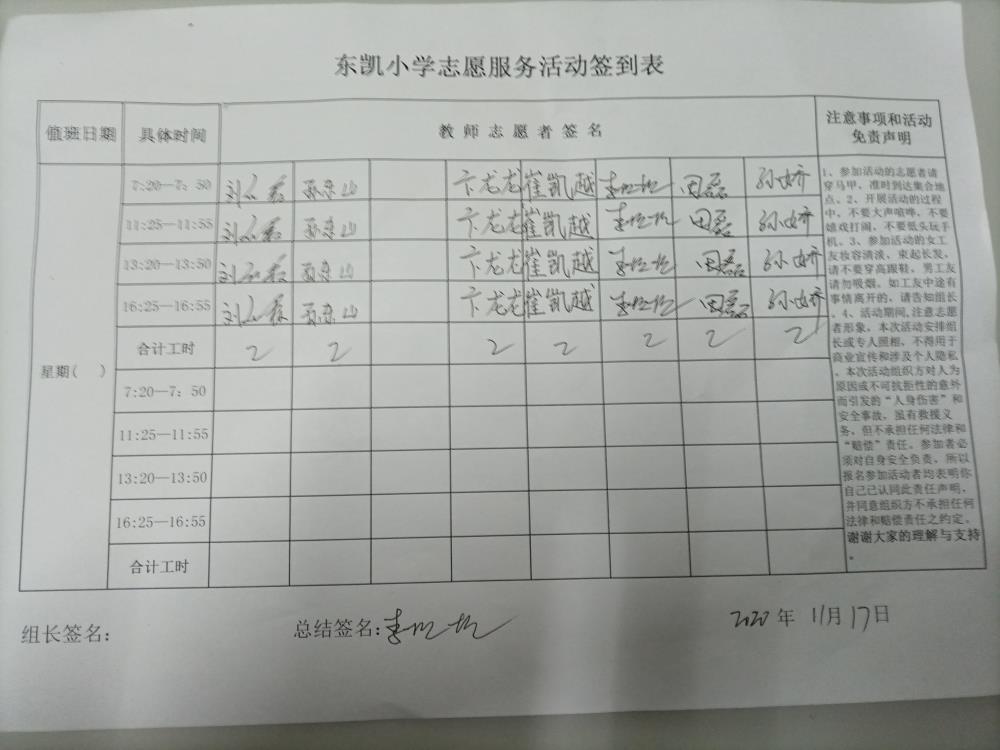 东凯小学志愿服务活动签到表
值班日期 具体时间 教师志愿者签名 注意事项和活动
免责声明
7:20—7:50 卞龙龙 崔凯越 田磊 孙娇
11:25—11:55 卞龙龙 崔凯越 田磊 孙娇
13:20—13:50 卞龙龙 崔凯越 田磊 孙娇
16:25—16:55 卞龙龙 崔凯越 田磊 孙娇
合计工时 2 2 2 2 2 2 2
星期( )
7:20—7:50
11:25—11:55
13:20—13:50
16:25—16:55
合计工时
1、参加活动的志愿者请
穿马甲，准时到达集合地
点。2、开展活动的过程
中，不要大声喧哗，不要
嬉戏打闹，不要低头玩手
机。3、参加活动的女工
友妆容清淡，束起长发，
请不要穿高跟鞋，男工友
请勿吸烟。如工友中途有
事情离开的，请告知组长
。4、活动期间,注意志愿
者形象，本次活动安排组
长或专人照相，不得用于
商业宣传和涉及个人隐私
。本次活动组织方对人为
原因或不可抗拒性的意外
而引发的“人身伤害”和
安全事故，虽有救援义
务，但不承担任何法律和
“赔偿”责任。参加者必
须对自身安全负责，所以
报名参加活动者均表明你
自己已认同此责任声明，
并同意组织方不承担任何
法律和赔偿责任之约定。
谢谢大家的理解与支持
。
组长签名： 总结签名： 2020年 11月17日